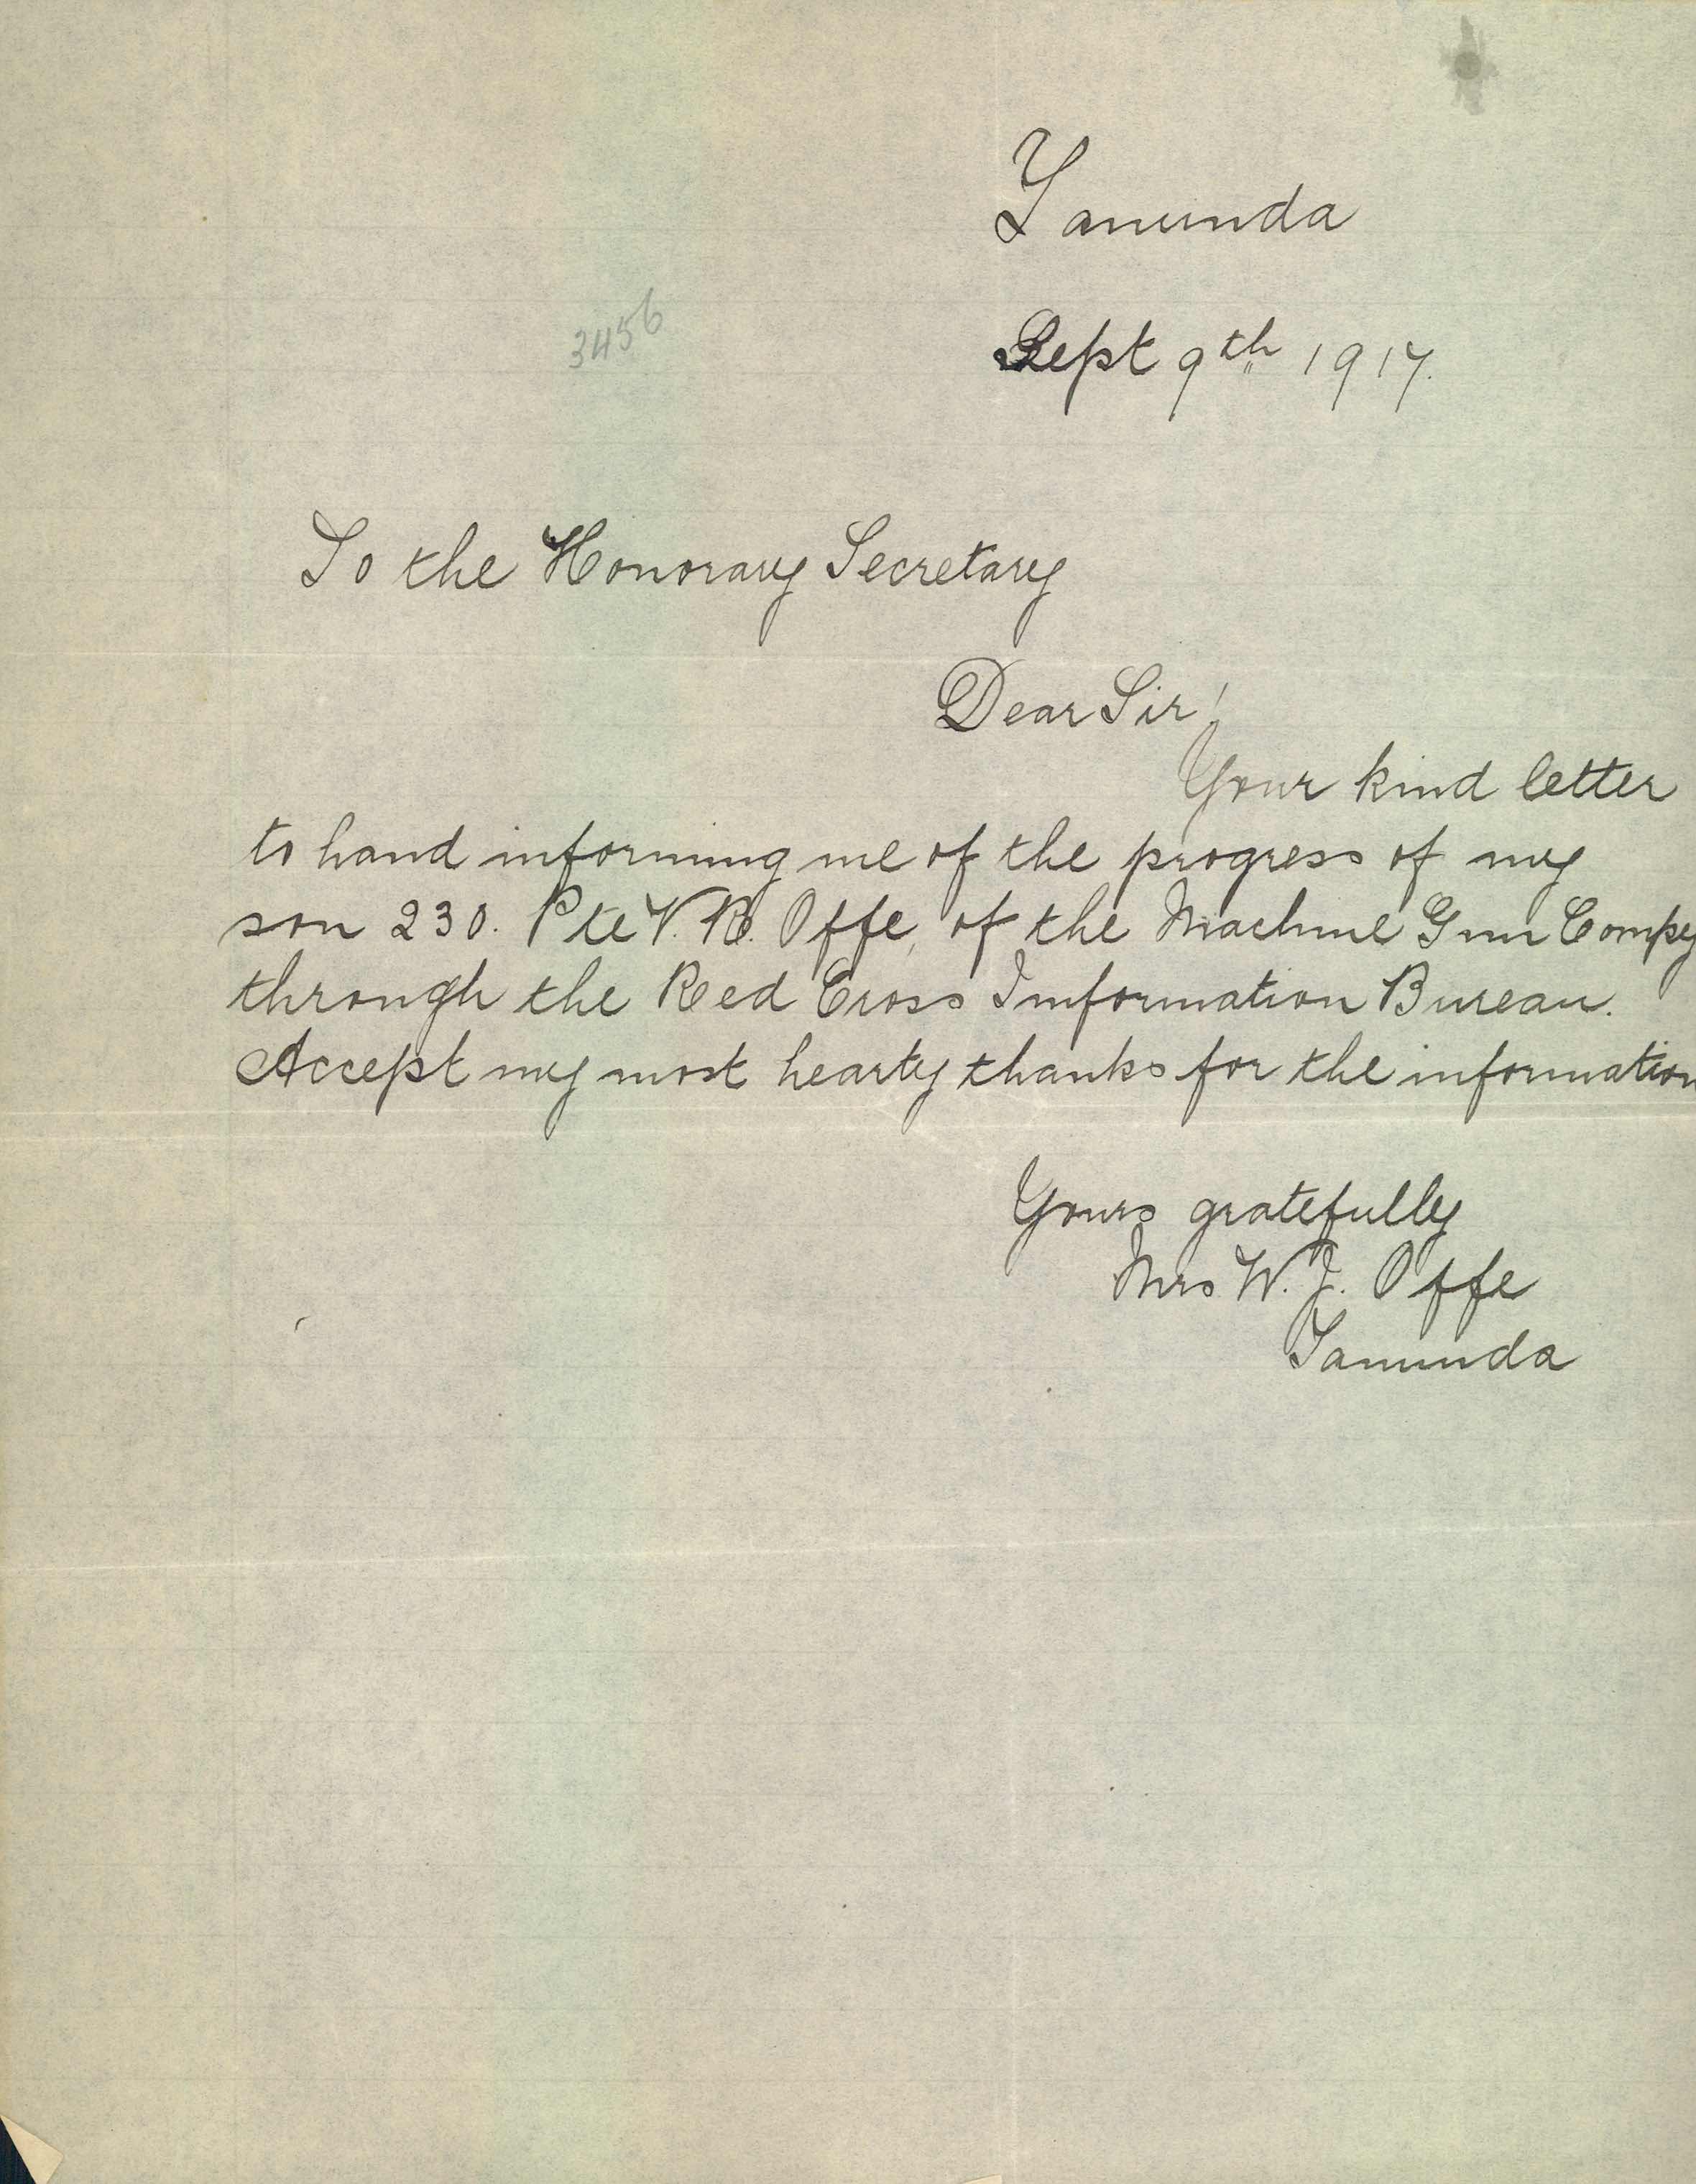 Tanunda
3456
Sept 9th 1917.
To the Honorary Secretary
Dear Sir!
Your kind letter
to hand informing me of the progress of my
son 230. Pte V. R. Offe, of the Machine Gun Compy
through the Red Cross Imformation Bureau.
Accept my most hearty thanks for the information
Yours gratefully
Mrs W. J. Offe
Tanunda